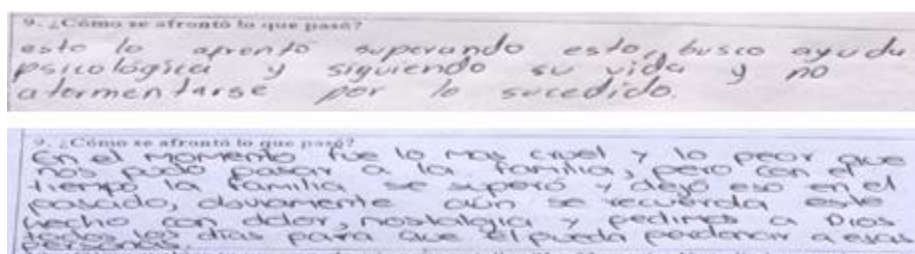 9. ¿Cómo se afrontó lo que pasó?
esto lo afrontó superando esto, busco ayuda
psicológica y siguiendo su vida y no
atormentarse por lo sucedido.
9. ¿Cómo se afrontó lo que pasó?
En el momento fue lo mas cruel y lo peor que
nos pudo pasar a la familia, pero con el
tiempo la familia se superó y dejó eso en el
pasado, obviamente aún se recuerda este
hecho con dolor, nostalgia y pedimos a Dios
todos los dias para que el pueda perdonar a esas
personas.